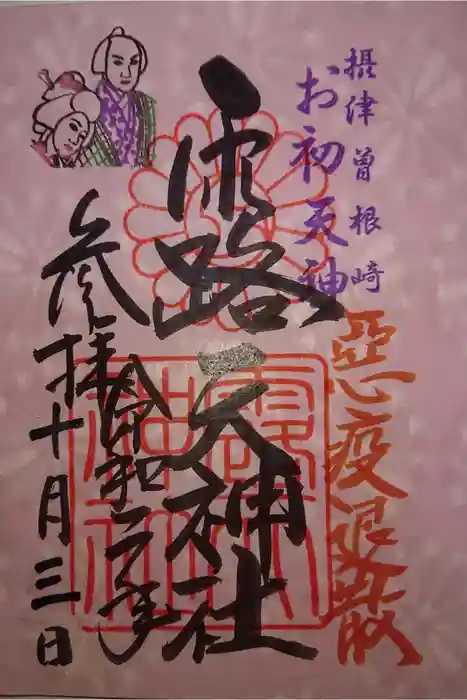 摂津曽根崎
お初天神
悪疫退散
露天神社
令和二年
参拝十月三日